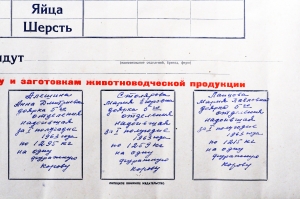 Яйца
Шерсть
и заготовкам животноводческой продукции
Алешина
Анна Дмитриевна
доярка 5-го
отделения
надоившая
за I полугодие
1963 года
по 1295 кг
на одну
фуражную
корову
Столярова
Мария
доярка 5-го
отделения
надоившая
за I полугодие
1963 года
по 1259 кг
на одну
фуражную
корову
Мария
доярка 5-го
отделения
надоившая
за I полугодие
1963 года
по 1215 кг
на одну
фуражную
корову